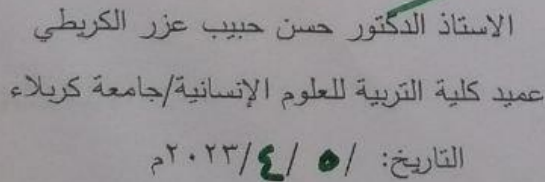 الاستاذ الدكتور حسن حبيب عزر الكريطي
عميد كلية التربية للعلوم الإنسانية/جامعة كربلاء
التاريخ: / ٥ /٤/٢٠٢٣م